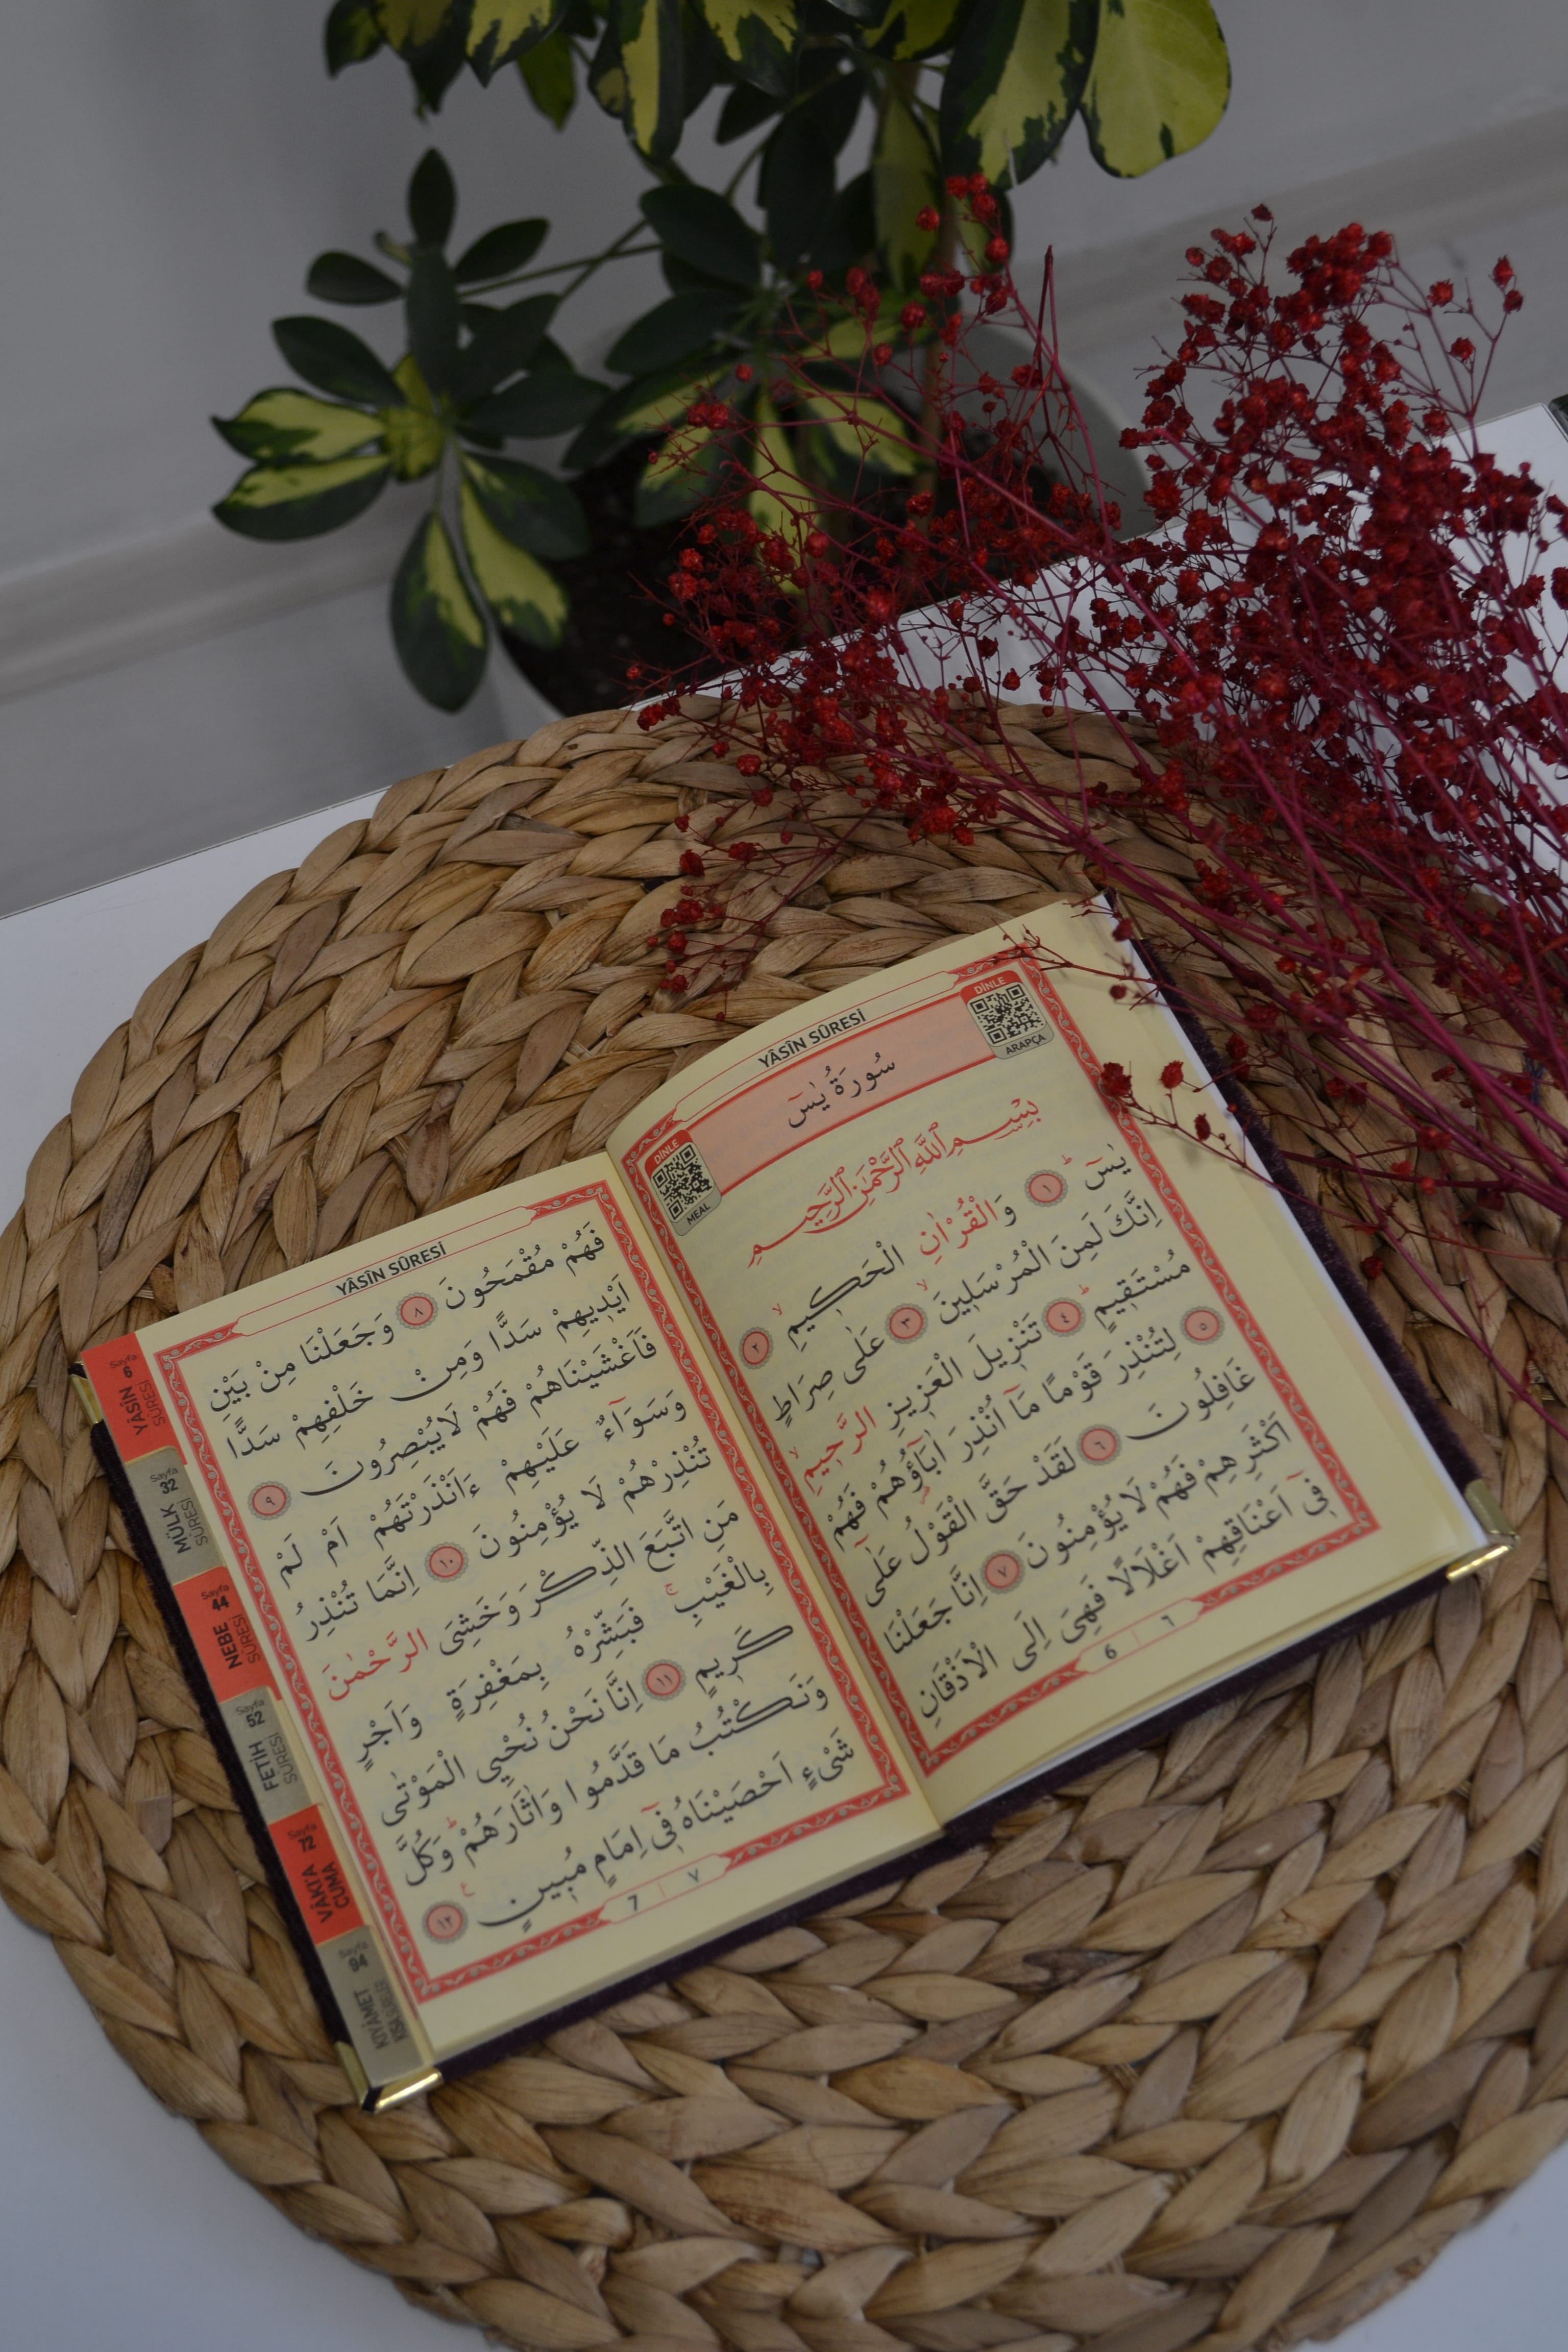 YÂSÎN SÛRESİ
DİNLE
ARAPÇA
DİNLE
MEAL
سُورَةُ يٰسٓ
بِسْمِ اللّٰهِ الرَّحْمٰنِ الرَّحِيمِ
يٰسٓ ۚ ١ وَالْقُرْاٰنِ الْحَكِيمِ ۙ ٢
اِنَّكَ لَمِنَ الْمُرْسَلِينَ ۙ ٣ عَلٰى صِرَاطٍ
مُسْتَقِيمٍ ۜ ٤ تَنْزِيلَ الْعَزِيزِ الرَّحِيمِ ۙ
٥ لِتُنْذِرَ قَوْمًا مَٓا اُنْذِرَ اٰبَٓاؤُ۬هُمْ فَهُمْ
غَافِلُونَ ٦ لَقَدْ حَقَّ الْقَوْلُ عَلٰٓى
اَكْثَرِهِمْ فَهُمْ لَا يُؤْمِنُونَ ٧ اِنَّا جَعَلْنَا
فِٓى اَعْنَاقِهِمْ اَغْلَالًا فَهِىَ اِلَى الْاَذْقَانِ
6 | ٦
YÂSÎN SÛRESİ
فَهُمْ مُقْمَحُونَ ٨ وَجَعَلْنَا مِنْ بَيْنِ
اَيْدِيهِمْ سَدًّا وَمِنْ خَلْفِهِمْ سَدًّا
فَاَغْشَيْنَاهُمْ فَهُمْ لَا يُبْصِرُونَ ٩
وَسَوَٓاءٌ عَلَيْهِمْ ءَاَنْذَرْتَهُمْ اَمْ لَمْ
تُنْذِرْهُمْ لَا يُؤْمِنُونَ ١٠ اِنَّمَا تُنْذِرُ
مَنِ اتَّبَعَ الذِّكْرَ وَخَشِىَ الرَّحْمٰنَ
بِالْغَيْبِ ۚ فَبَشِّرْهُ بِمَغْفِرَةٍ وَاَجْرٍ
كَرِيمٍ ١١ اِنَّا نَحْنُ نُحْيِى الْمَوْتٰى
وَنَكْتُبُ مَا قَدَّمُوا وَاٰثَارَهُمْ ۜ وَكُلَّ
شَىْءٍ اَحْصَيْنَاهُ فِٓى اِمَامٍ مُبِينٍ ١٢
7 | ٧
Sayfa 6
YÂSİN
SÛRESİ
Sayfa 32
MÜLK
SÛRESİ
Sayfa 44
NEBE
SÛRESİ
Sayfa 52
FETİH
SÛRESİ
Sayfa 72
VÂKIA
CUMA
Sayfa 94
KIYÂMET